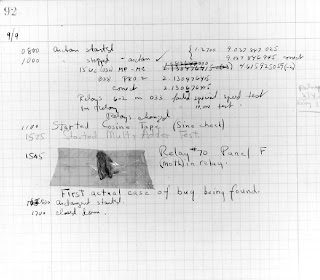 92
9/9
0800 Antan started
1000 " stopped - antan ✓ { 1.2700 9.037 847 025
9.037 846 995 correct
13" UC (032) MP - MC 2.130476415 (-3) 4.615925059 (-2)
033 PRO 2 2.130476415
correct 2.130676415
Relays 6-2 in 033 failed special speed test
in relay 11.00 test.
Relays changed
1100 Started Cosine Tape (Sine check)
1525 Started Multi Adder Test.
1545 Relay #70 Panel F
(moth) in relay.
First actual case of bug being found.
1630 antangent started.
1700 closed down.